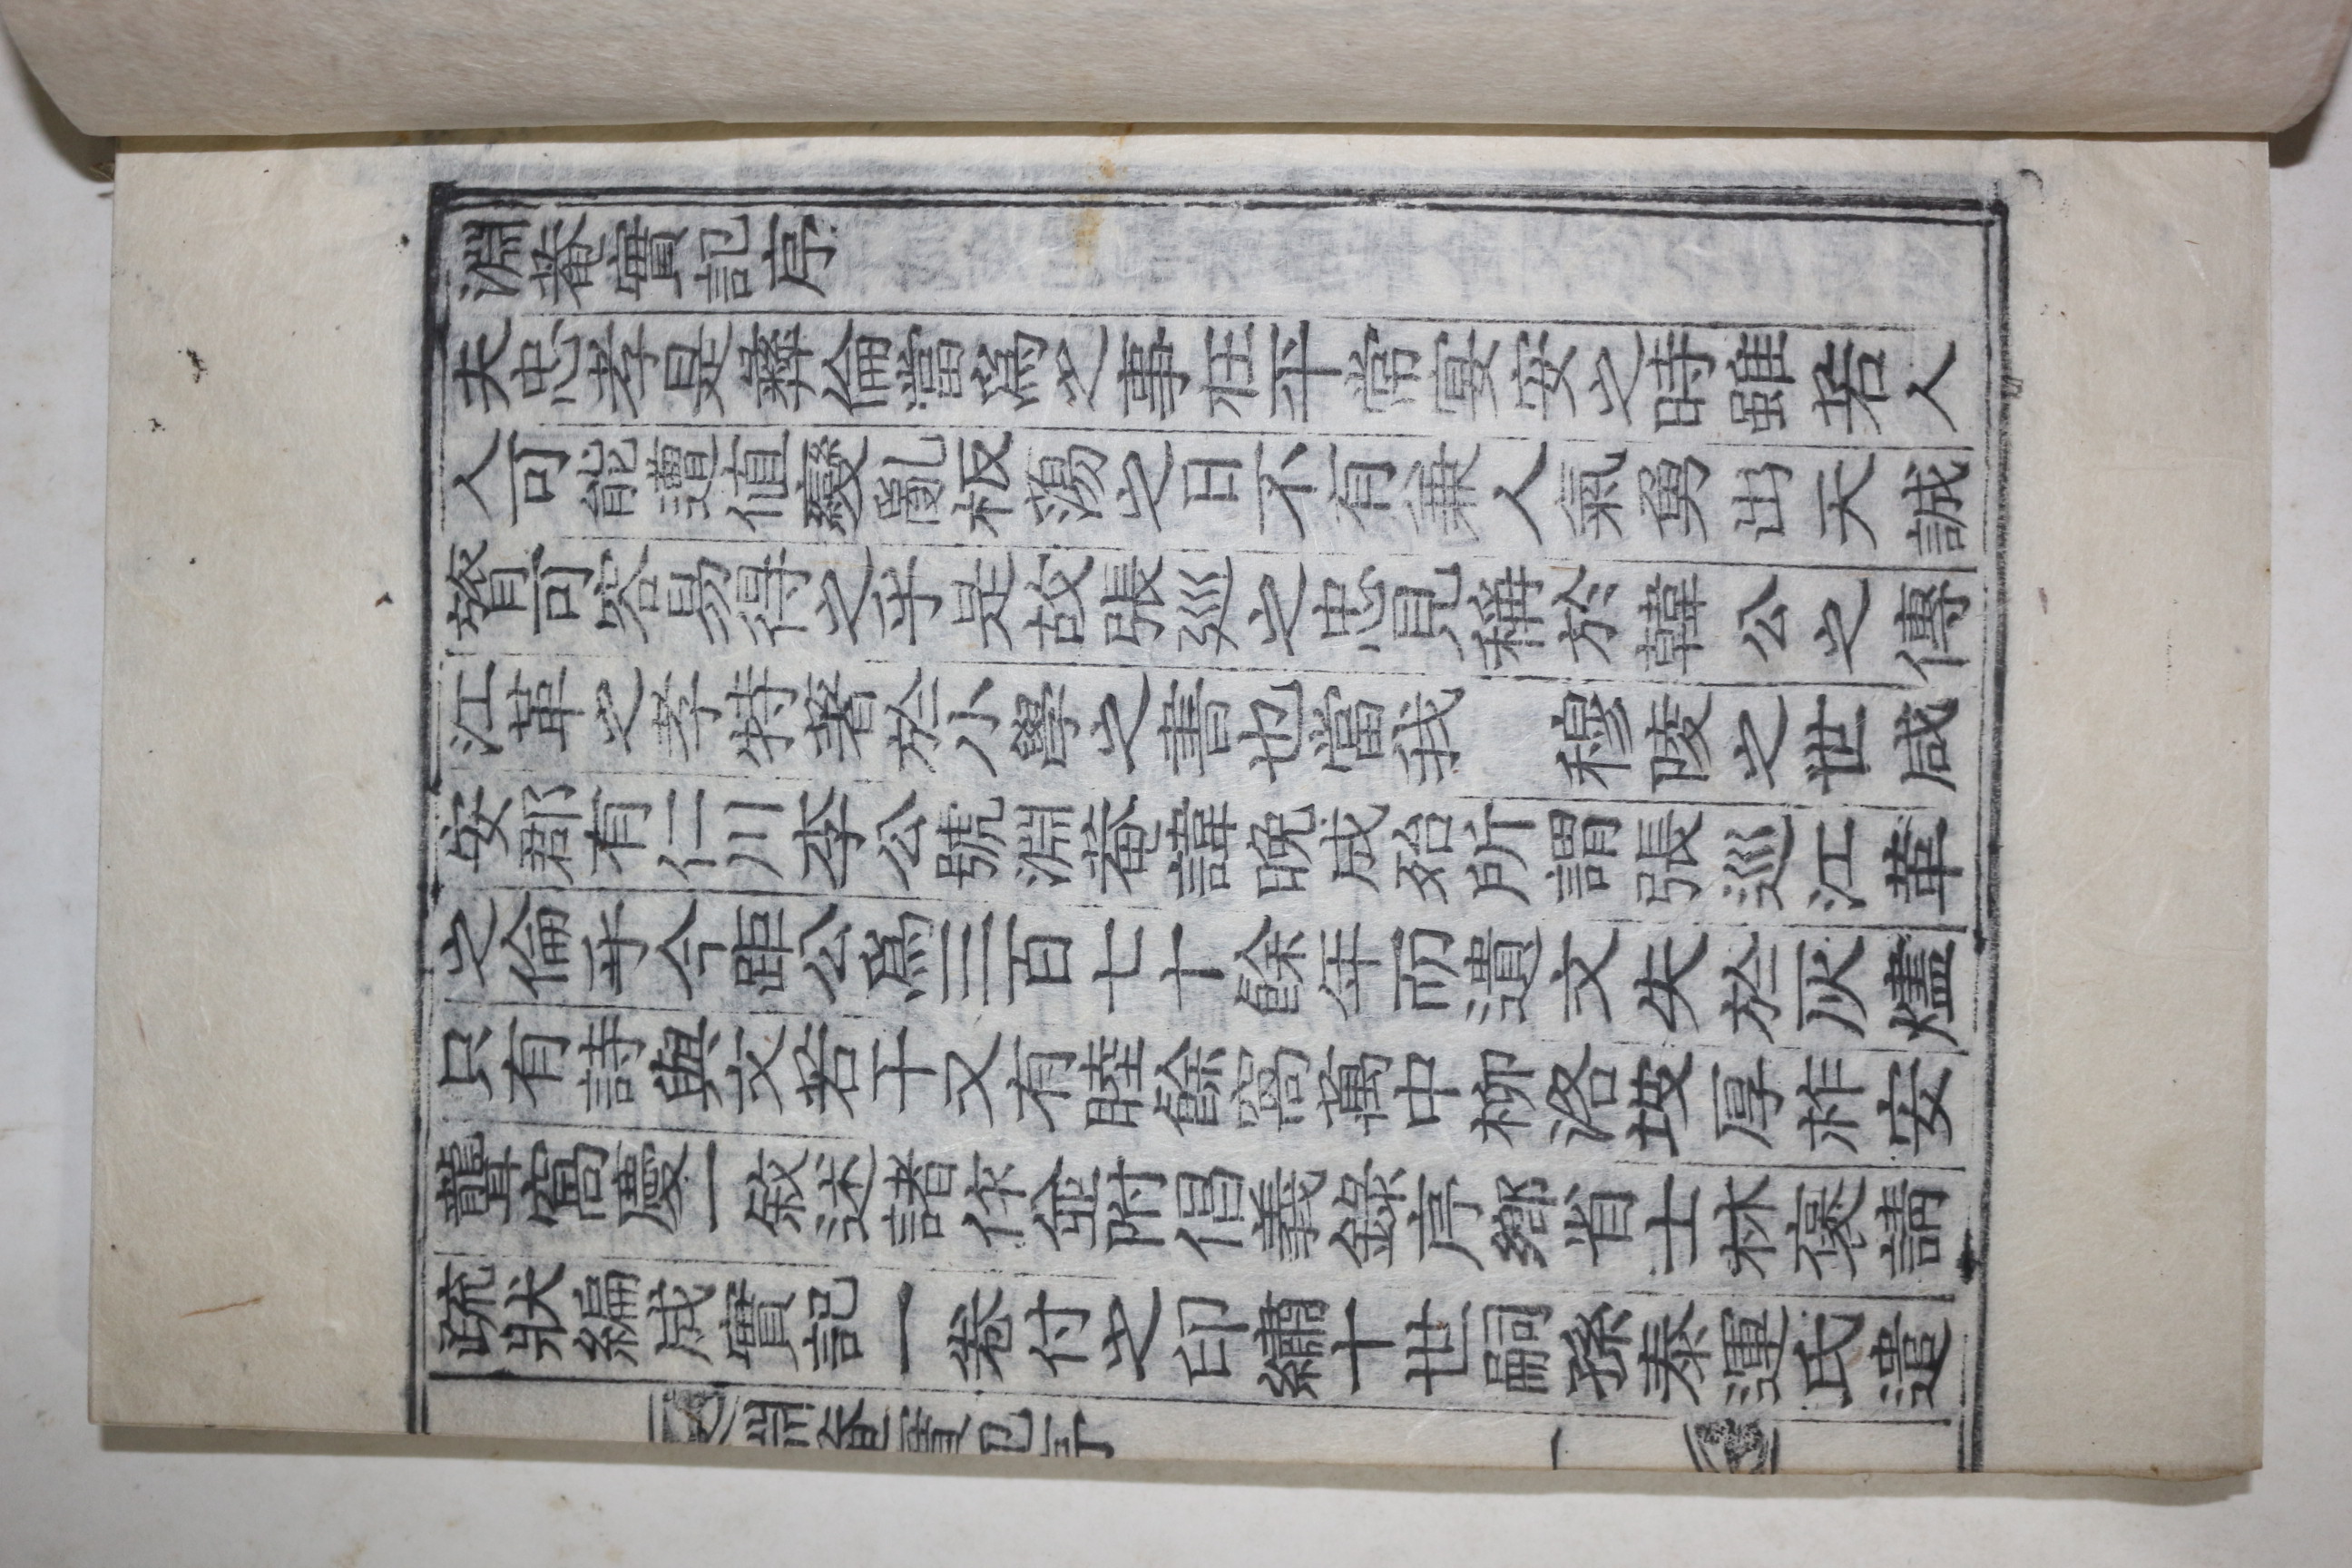 淵菴實記序
夫忠孝是彛倫當爲之事在平常宴安之時雖若人
人可能遭値變亂板蕩之日不有兼人氣勇出天誠
膂可容易得之乎是故張巡之忠見稱於韓公之傳
江革之孝特著於小學之書也當我 穆陵之世咸
安郡有仁川李公號淵菴諱晩成殆所謂張巡江革
之倫乎今距公爲三百七十餘年而遺文失於灰燼
只有詩與文若干又有睦餘窩萬中柳洛坡厚祚安
聾窩慶一敘述諸作並附倡義錄序鄕省士林褒請
疏狀編成實記一卷付之印繡十世嗣孫泰運氏遣
淵菴實記序 一